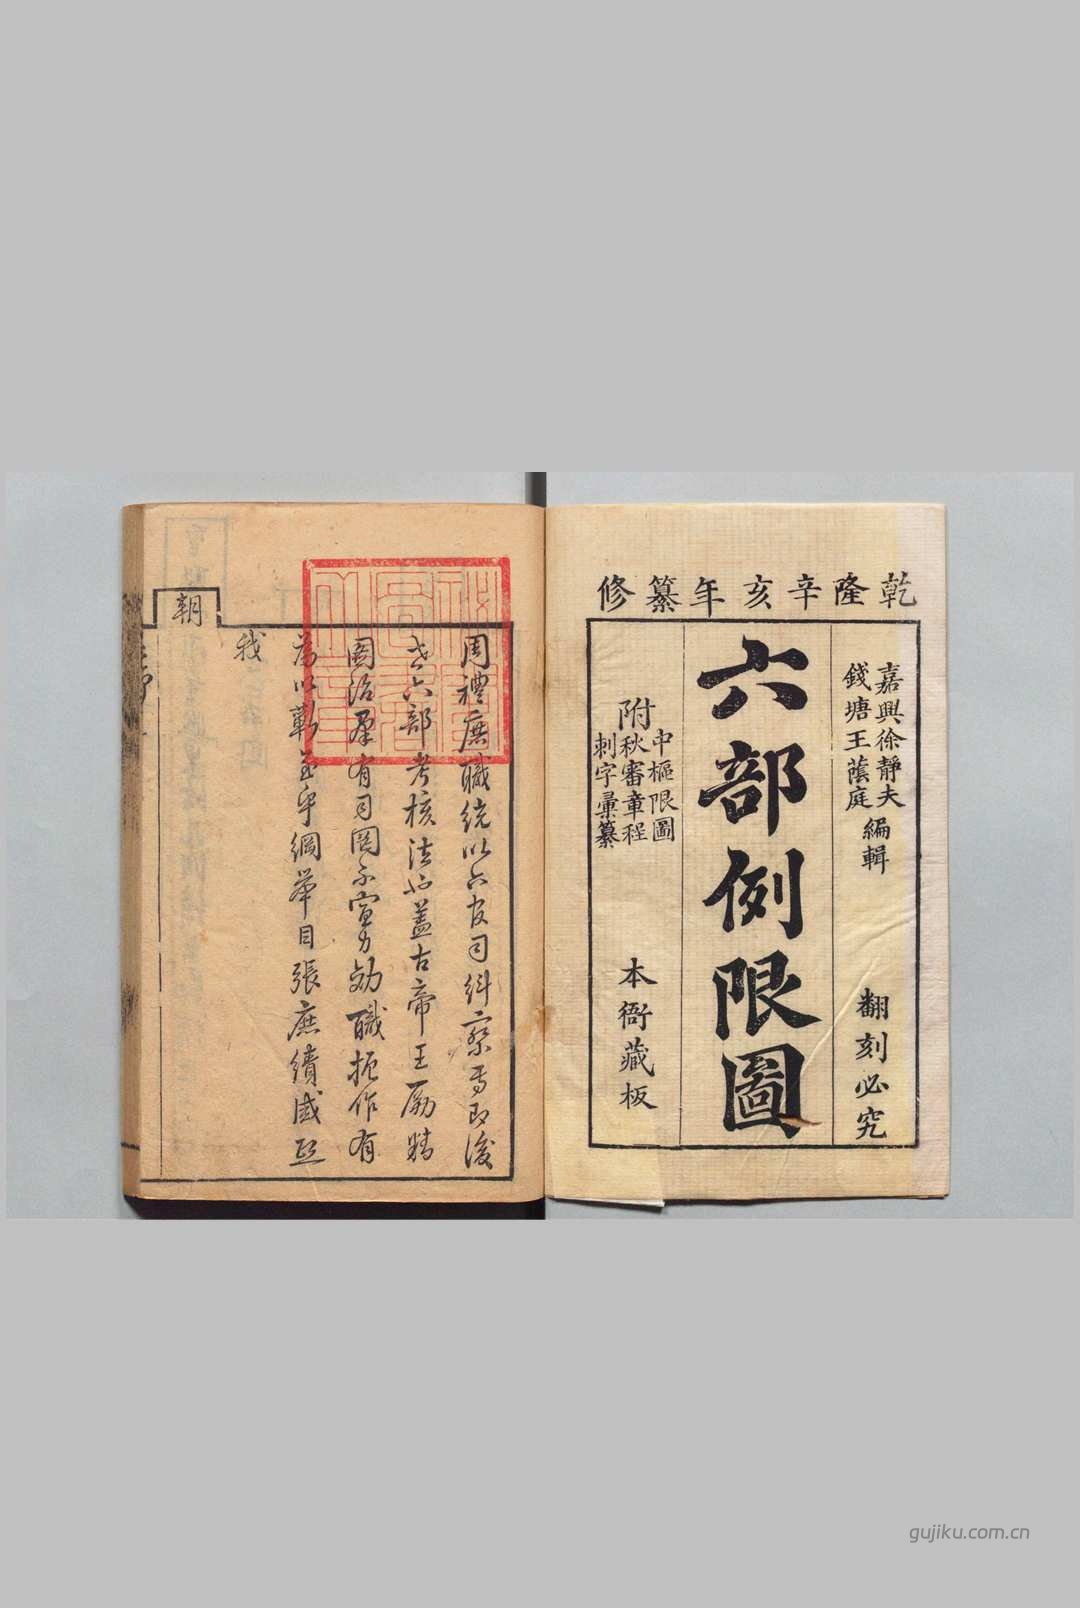 乾隆辛亥年纂修
嘉興徐靜夫
錢塘王蔭庭
編輯
翻刻必究
六部例限圖
附
中樞限圖
秋審章程
刺字彙纂
本衙藏板
周禮庶職統以六官司糾察焉即後
世六部考核法也蓋古帝王勵精
圖治羣有司罔不宣力効職振作有
為以蘄至乎綱舉目張庶績咸熙
我
朝
gujiku.com.cn